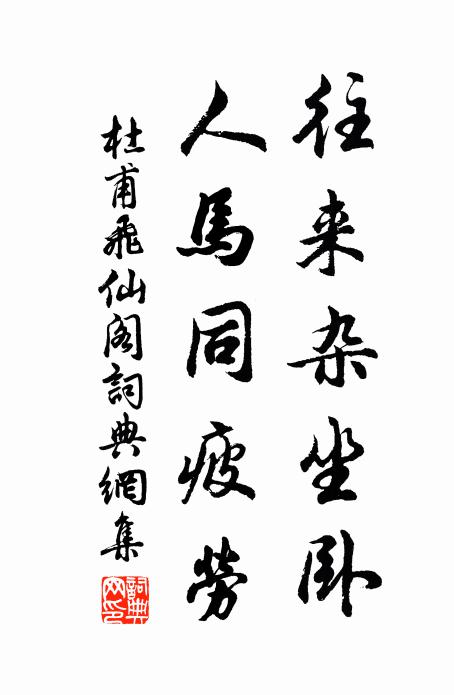 往来杂坐卧
人馬同疲勞
杜甫飛仙阁詞典網集
詞典网印